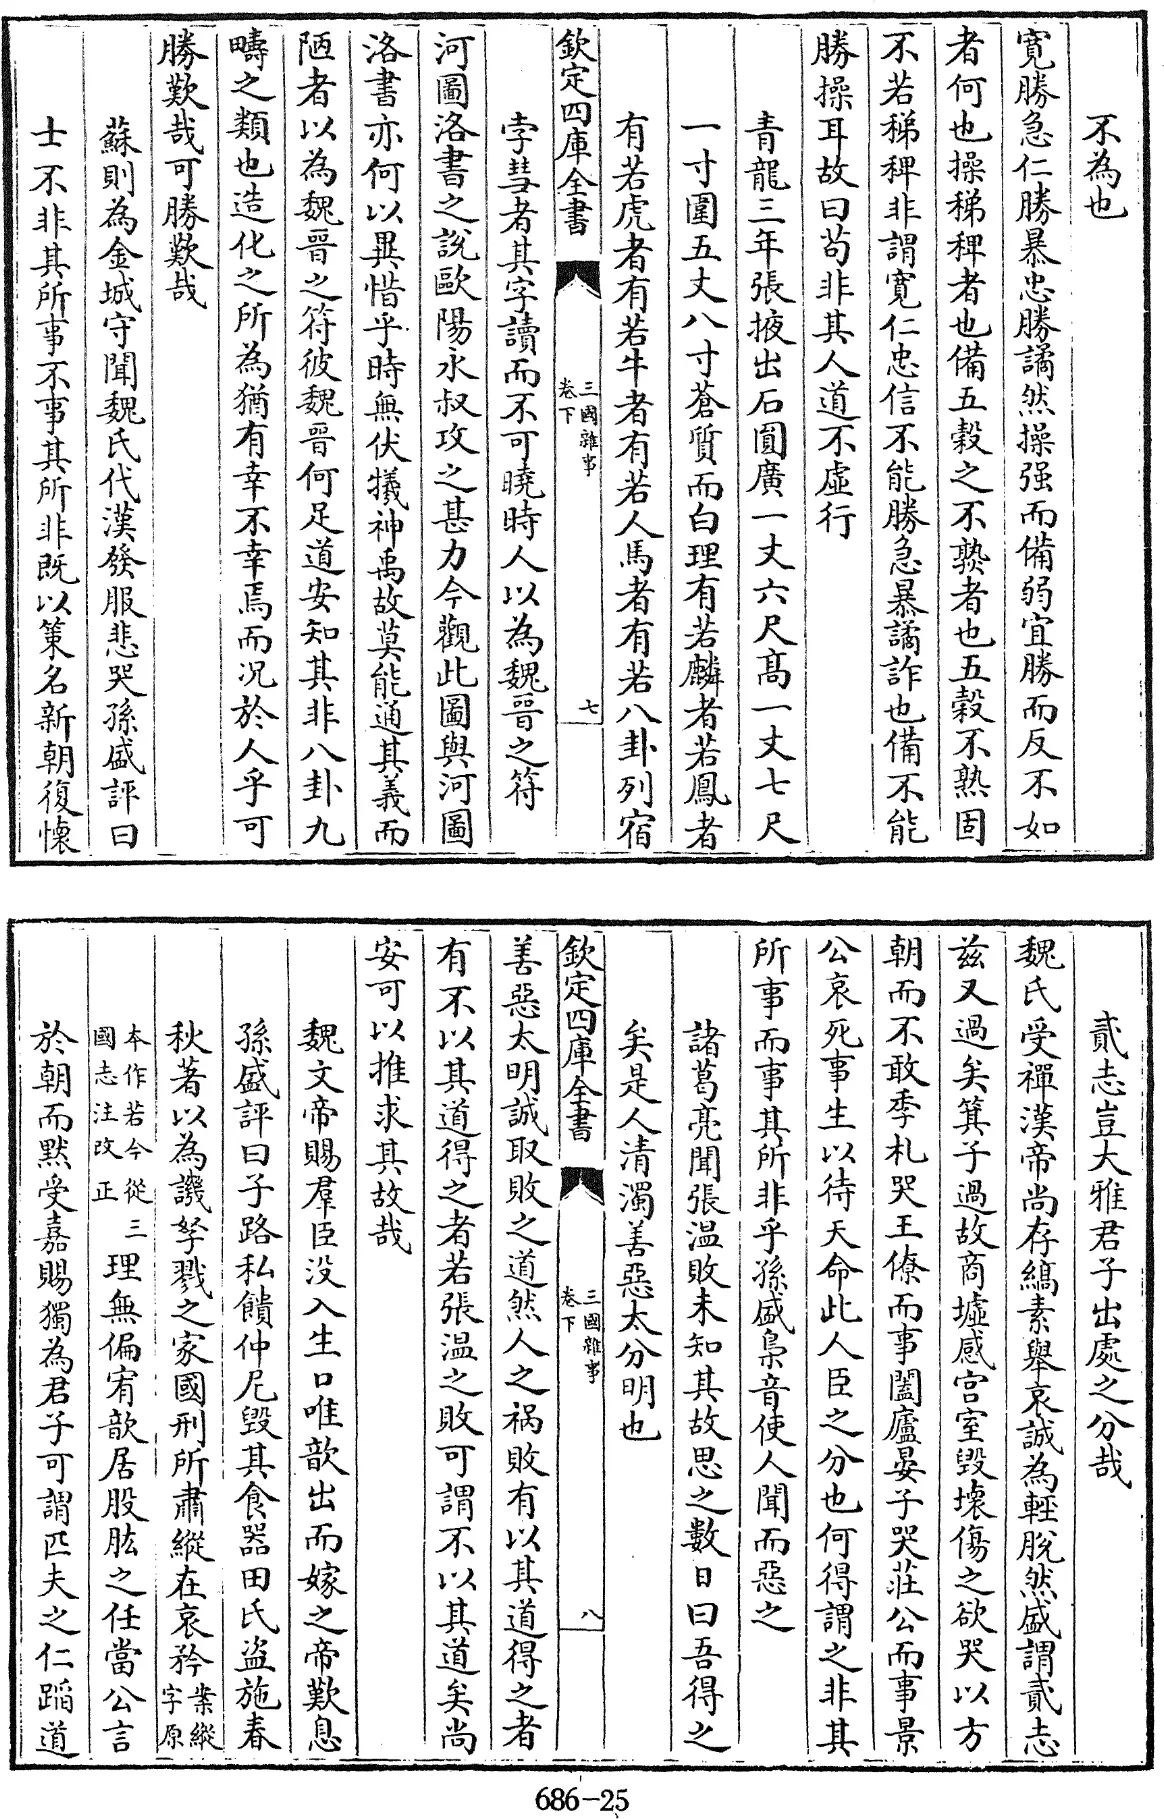 不為也
寛勝急仁勝暴忠勝譎然操强而備弱宜勝而反不如
者何也操稊稗者也備五穀之不熟者也五穀不熟固
不若稊稗非謂寛仁忠信不能勝急暴譎詐也備不能
勝操耳故曰苟非其人道不虛行
青龍三年張掖出石圓廣一丈六尺髙一丈七尺
一寸圍五丈八寸蒼質而白理有若麟者若鳳者
有若虎者有若牛者有若人馬者有若八卦列宿
欽定四庫全書
三國雜事
卷下
七
孛彗者其字讀而不可曉時人以為魏晉之符
河圖洛書之説歐陽永叔攻之甚力今觀此圖與河圖
洛書亦何以異惜乎時無伏犧神禹故莫能通其義而
陋者以為魏晉之符彼魏晉何足道安知其非八卦九
疇之類也造化之所為猶有幸不幸焉而况於人乎可
勝歎哉可勝歎哉
蘇則為金城守聞魏氏代漢發服悲哭孫盛評曰
士不非其所事不事其所非既以策名新朝復懷
貳志豈大雅君子出處之分哉
魏氏受禪漢帝尚存縞素舉哀誠為輕脫然盛謂貳志
兹又過矣箕子過故商墟感宫室毀壞傷之欲哭以方
朝而不敢季札哭王僚而事闔廬晏子哭莊公而事景
公哀死事生以待天命此人臣之分也何得謂之非其
所事而事其所非乎孫盛梟音使人聞而惡之
諸葛亮聞張温敗未知其故思之數日曰吾得之
矣是人清濁善惡太分明也
欽定四庫全書
三國雜事
卷下
八
善惡太明誠取敗之道然人之禍敗有以其道得之者
有不以其道得之者若張温之敗可謂不以其道矣尚
安可以推求其故哉
魏文帝賜羣臣没入生口唯歆出而嫁之帝歎息
孫盛評曰子路私饋仲尼毀其食器田氏盜施春
秋著以為譏孥戮之家國刑所肅縱在哀矜案縱字原
本作若今從三國志注改正理無偏宥歆居股肱之任當公言
於朝而黙受嘉賜獨為君子可謂匹夫之仁蹈道
686-25